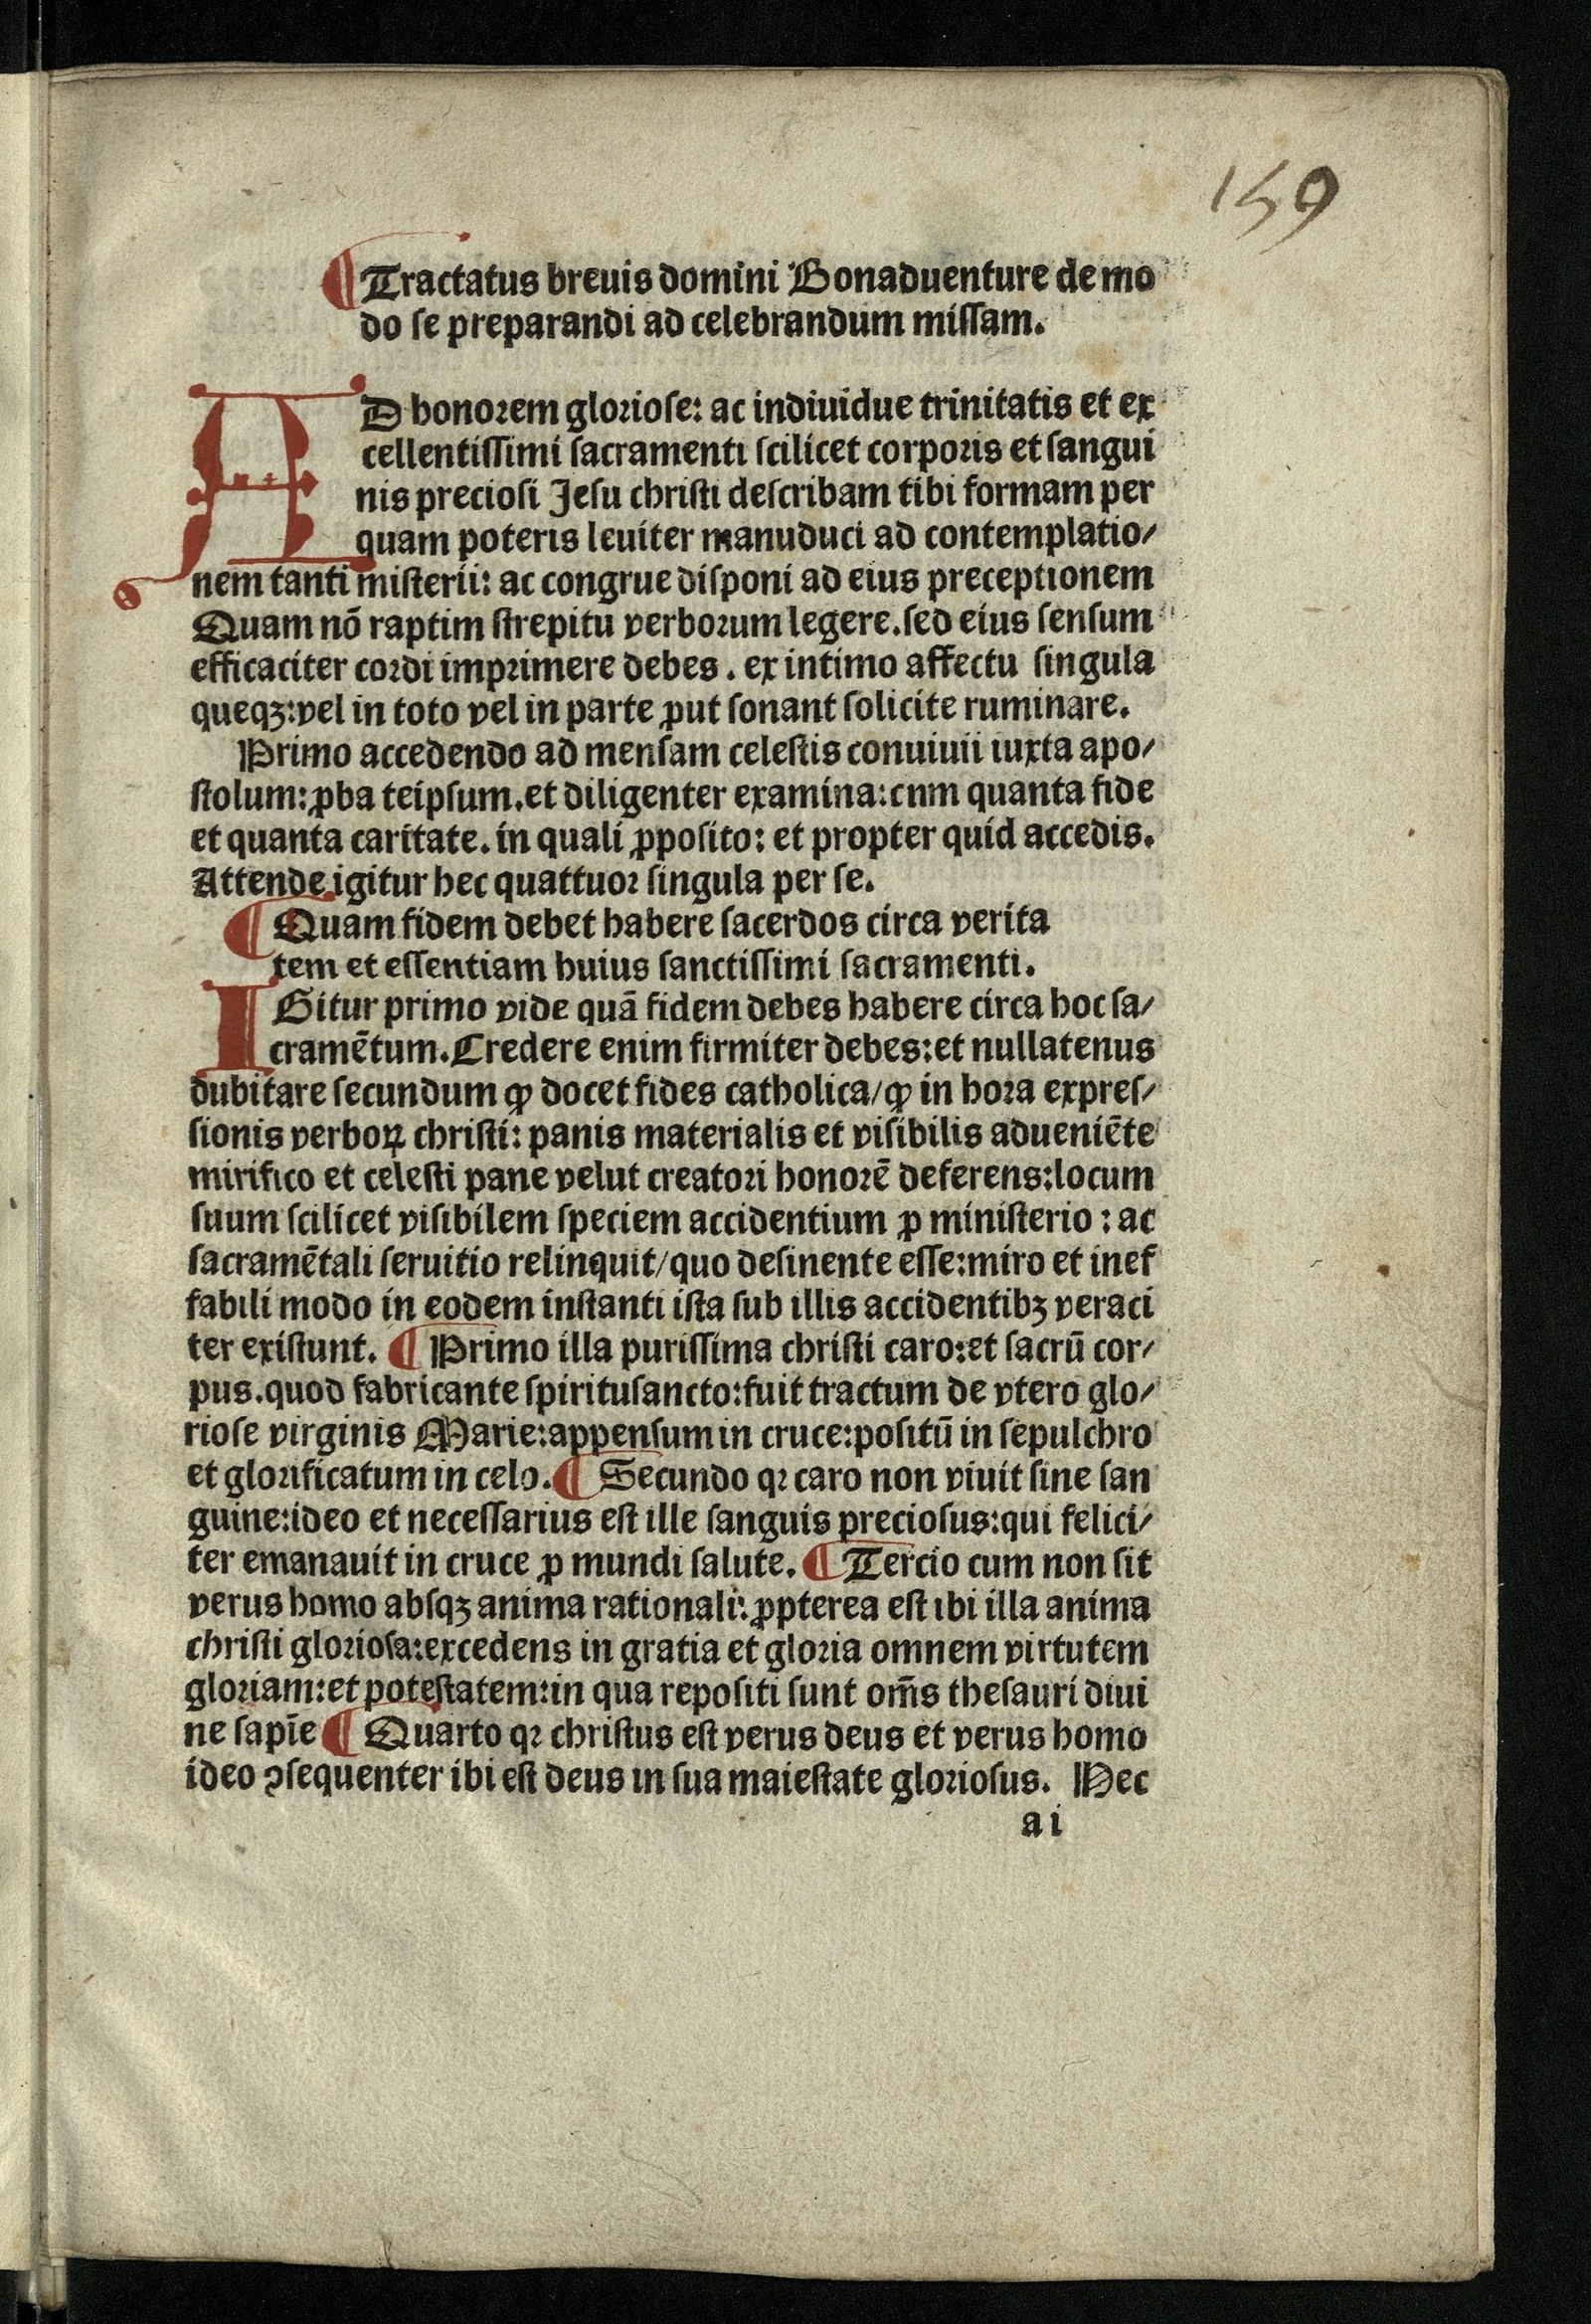 159
¶ Tractatus breuis domini Bonaduenture de mo
do se preparandi ad celebrandum missam.
AD honorem gloriose: ac indiuidue trinitatis et ex
cellentissimi sacramenti scilicet corporis et sangui
nis preciosi Jesu christi describam tibi formam per
quam poteris leuiter manuduci ad contemplatio/
nem tanti misterii: ac congrue disponi ad eius preceptionem
Quam nō raptim strepitu verborum legere. sed eius sensum
efficaciter cordi imprimere debes. ex intimo affectu singula
queqꝫ: vel in toto vel in parte ꝓut sonant solicite ruminare.
Primo accedendo ad mensam celestis conuiuii iuxta apo/
stolum: ꝓba teipsum. et diligenter examina: cnm quanta fide
et quanta caritate. in quali ꝓposito: et propter quid accedis.
Attende igitur hec quattuor singula per se.
¶ Quam fidem debet habere sacerdos circa verita
tem et essentiam huius sanctissimi sacramenti.
IGitur primo vide quā fidem debes habere circa hoc sa/
cramētum. Credere enim firmiter debes: et nullatenus
dubitare secundum ꝙ docet fides catholica/ ꝙ in hora expres/
sionis verboꝝ christi: panis materialis et visibilis adueniēte
mirifico et celesti pane velut creatori honorē deferens: locum
suum scilicet visibilem speciem accidentium ꝓ ministerio: ac
sacramētali seruitio relinquit/ quo desinente esse: miro et inef
fabili modo in eodem instanti ista sub illis accidentibꝫ veraci
ter existunt. ¶ Primo illa purissima christi caro: et sacrū cor/
pus. quod fabricante spiritusancto: fuit tractum de vtero glo/
riose virginis Marie: appensum in cruce: positū in sepulchro
et glorificatum in celo. ¶ Secundo qꝛ caro non viuit sine san
guine: ideo et necessarius est ille sanguis preciosus: qui felici/
ter emanauit in cruce ꝓ mundi salute. ¶ Tercio cum non sit
verus homo absqꝫ anima rationali: ꝓpterea est ibi illa anima
christi gloriosa: excedens in gratia et gloria omnem virtutem
gloriam: et potestatem: in qua repositi sunt om̄s thesauri diui
ne sapīe ¶ Quarto qꝛ christus est verus deus et verus homo
ideo ꝯsequenter ibi est deus in sua maiestate gloriosus. Hec
a i